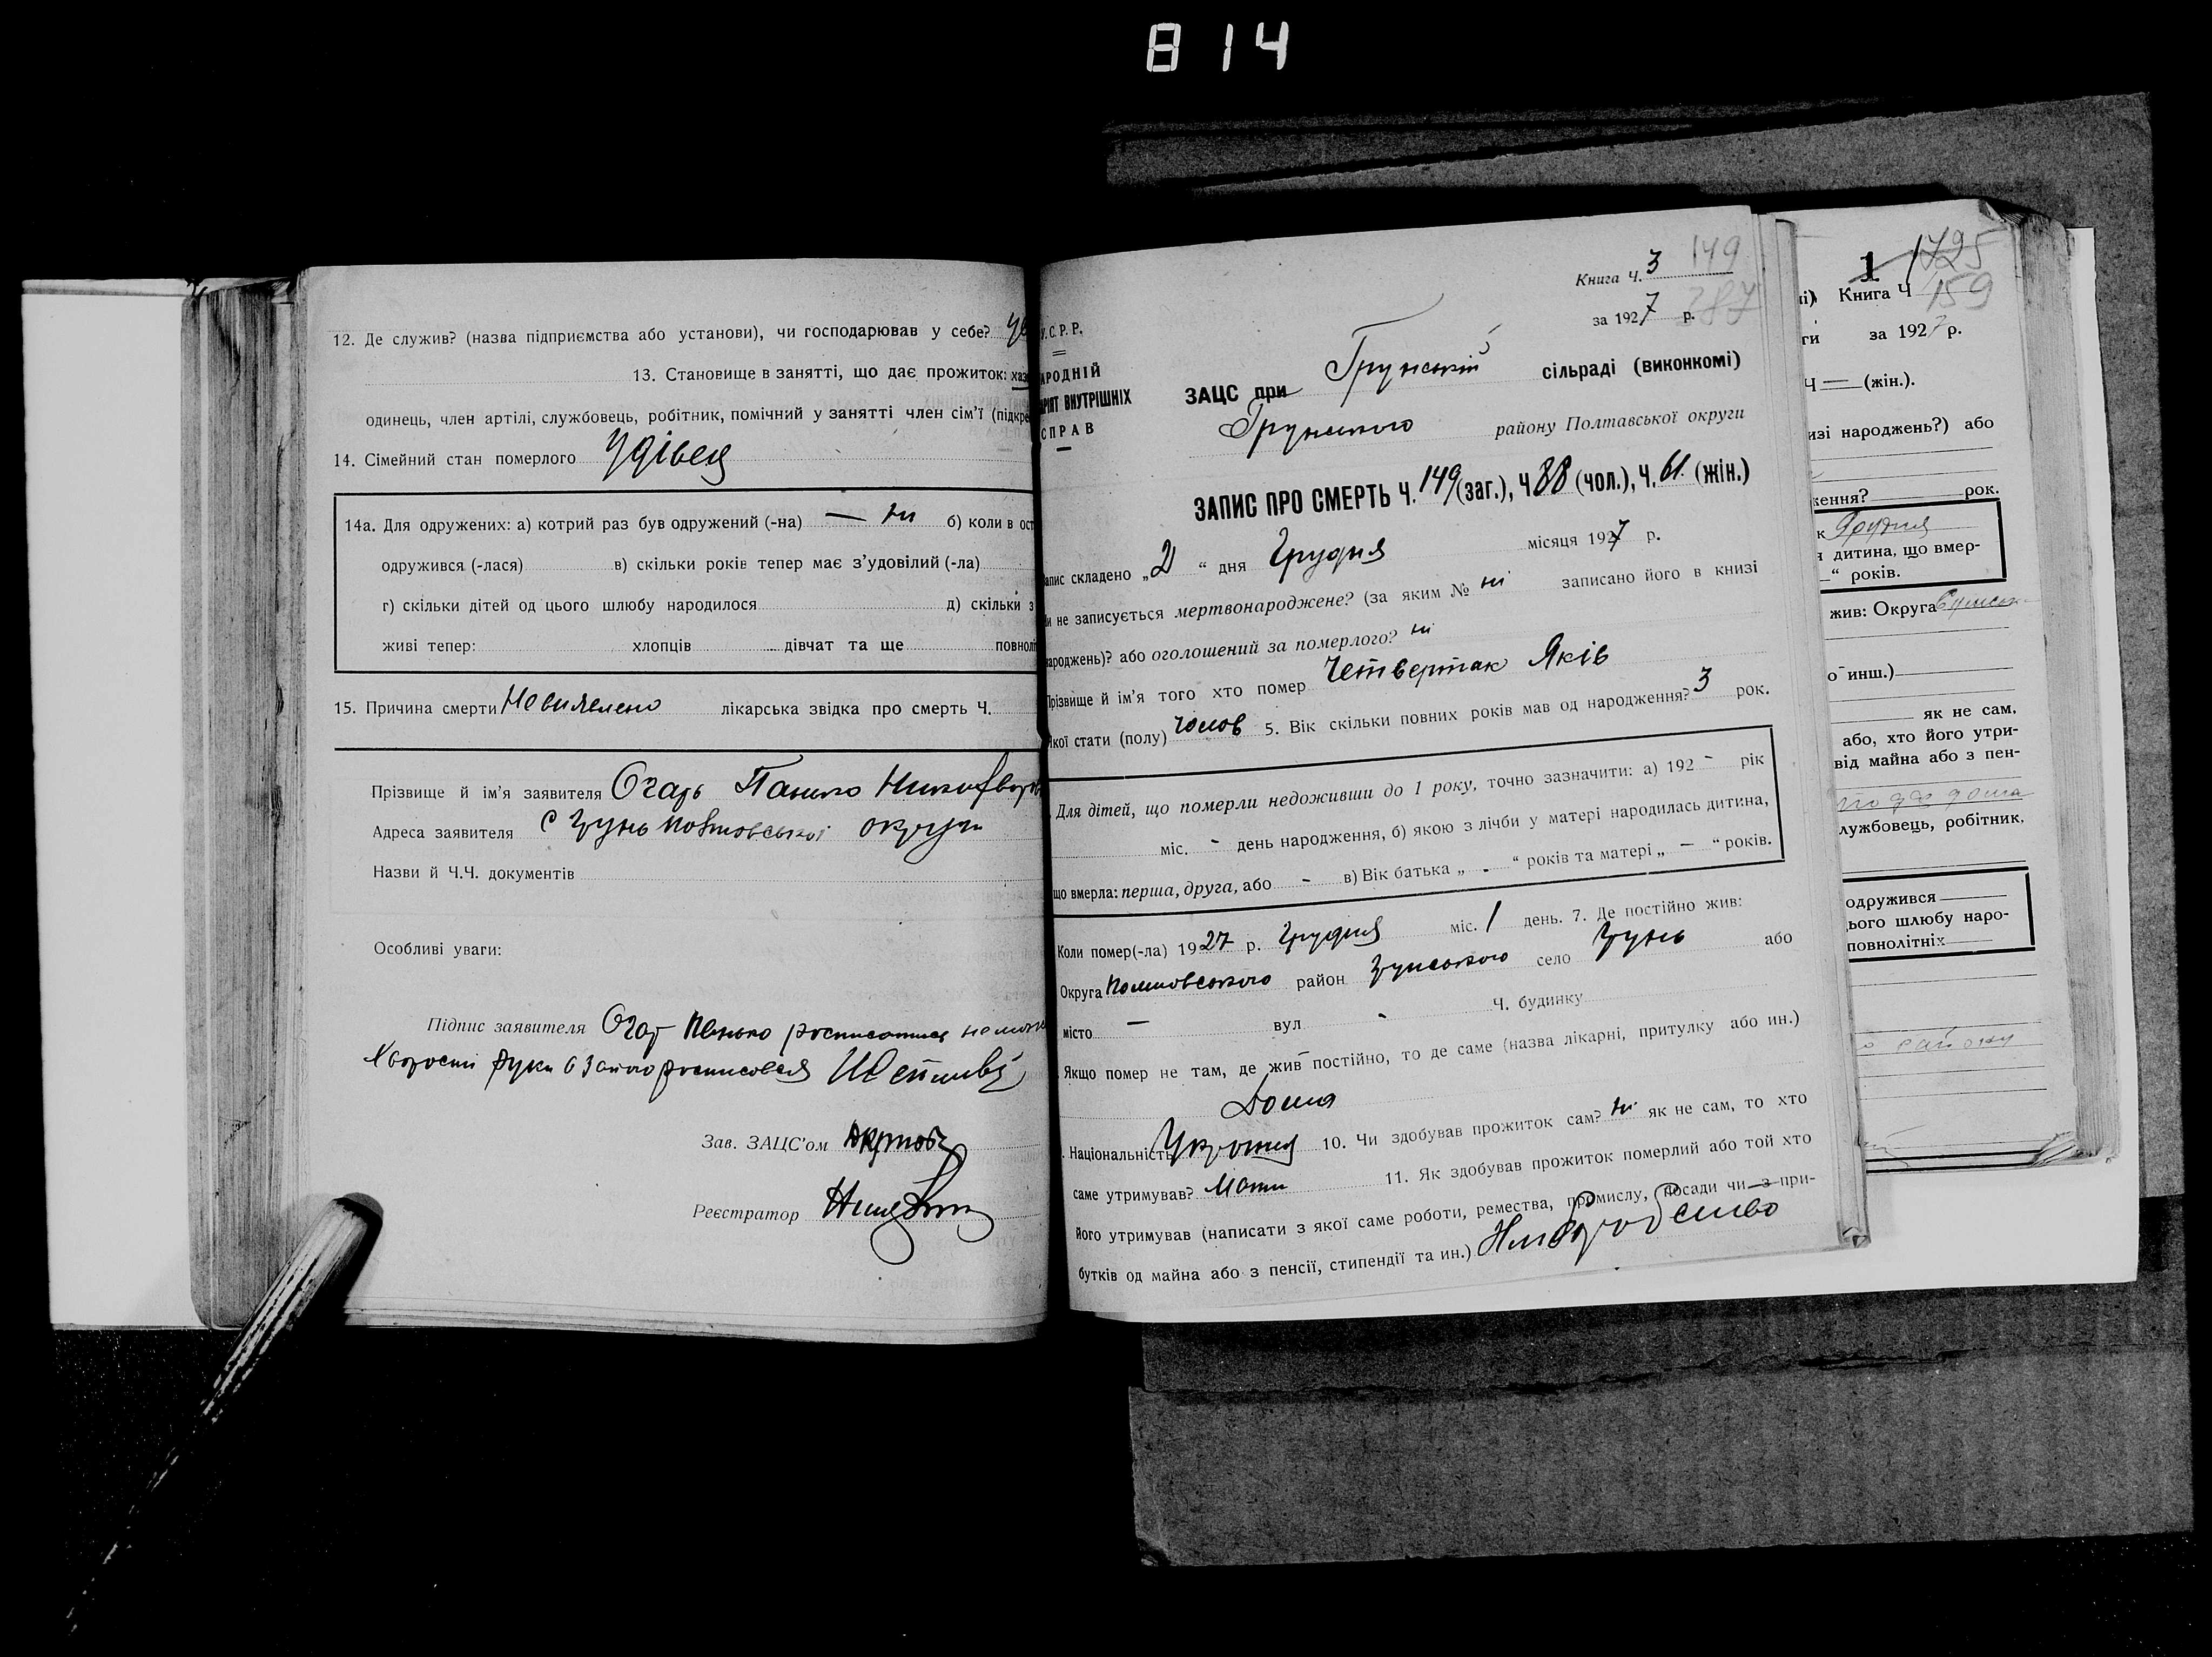 814
12. Де служив? (назва підприємства або установи), чи господарював у себе?
13. Становище в занятті, що дає прожиток: хаз
одинець, член артілі, службовець, робітник, помічний у занятті член сім'ї (підкре
14. Сімейний стан померлого Удівец
14а. Для одружених: а) котрий раз був одружений (-на) — ни б) коли в ост
одружився (-лася) в) скільки років тепер має з'удовілий (-ла)
г) скільки дітей од цього шлюбу народилося д) скільки з
живі тепер: хлопців дівчат та ще повнолі
15. Причина смерти Невиявлено лікарська звідка про смерть Ч.
Прізвище й ім'я заявителя Огарь Панько
Адреса заявителя с Грунь Полтовської округи
Назви й Ч.Ч. документів
Особливі уваги:
Підпис заявителя Панько росписатись
руки
Зав. ЗАЦС'ом
Реєстратор
Книга Ч. 3 149
за 1927 р. 287
У.С.Р.Р.
АРОДНІЙ
АРІЯТ ВНУТРІШНІХ
СПРАВ
ЗАЦС при Грунській сільраді (виконкомі)
Грунського району Полтавської округи
ЗАПИС ПРО СМЕРТЬ Ч. 149 (заг.), Ч 88 (чол.), Ч. 61. (жін.)
апис складено „2" дня Грудня місяця 1927 р.
и не записується мертвонароджене? (за яким № ні записано його в книзі
народжень)? або оголошений за померлого? ні
Прізвище й ім'я того хто помер Четвертак Яків
Якої стати (полу) чолов 5. Вік скільки повних років мав од народження? 3 рок.
Для дітей, що померли недоживши до 1 року, точно зазначити: а) 192 - рік
міс. - день народження, б) якою з лічби у матері народилась дитина,
що вмерла: перша, друга, або - в) Вік батька „ - " років та матері „ — " років.
Коли помер(-ла) 1927 р. Грудня міс. 1 день. 7. Де постійно жив:
Округа Полтовського район Грунського село Грунь або
місто — вул - Ч. будинку
Якщо помер не там, де жив постійно, то де саме (назва лікарні, притулку або ин.)
Дома
Національність Україня 10. Чи здобував прожиток сам? ні як не сам, то хто
саме утримував? Мати 11. Як здобував прожиток померлий або той хто
його утримував (написати з якої саме роботи, ремества, промислу, посади чи з при-
бутків од майна або з пенсії, стипендії та ин.) Хліборобство
1 1725
і) Книга Ч 159
ги за 1927 р.
Ч — (жін.).
изі народжень?) або
ження? рок.
к Грудня
я дитина, що вмер-
—" років.
жив: Округа
о инш.)
як не сам,
або, хто його утри-
від майна або з пен-
лужбовець, робітник,
одружився
ього шлюбу наро-
повнолітніх
району